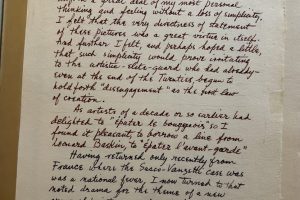 a great deal of my most personal
thinking and feeling without a loss of simplicity.
I felt that the very directness of statement
of these pictures was a great virtue in itself.
And further I felt, and perhaps hoped a little,
that such simplicity would prove irritating
to the artistic elite-guard who had already–
even at the end of the Twenties, begun to
hold forth "disengagement" as the first law
of creation.
As artists of a decade or so earlier had
delighted to "épater le bourgeois" so I
found it pleasant to borrow a line from
Leonard Baskin, to "épater l'avant-garde"
Having returned only recently from
France where the Sacco-Vanzetti case was
was a national fever, I now turned to that
noted drama for the theme of a new